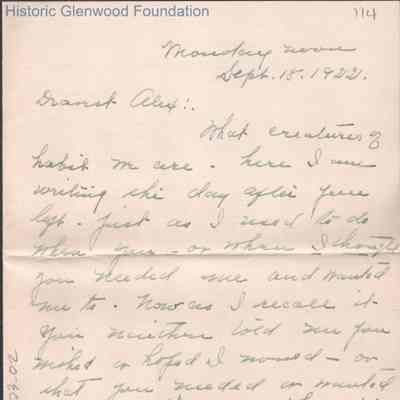 Historic Glenwood Foundation
114
Monday noon
Sept. 18. 1922.
Dearest Alex:.
What creatures of
habit we are. here I am
writing the day after you
left. Just as I used to do
when you - or when I thought
you needed me and wanted
me to. Now as I recall it
you neither told me you
wished or hoped I would - or
that you needed or wanted